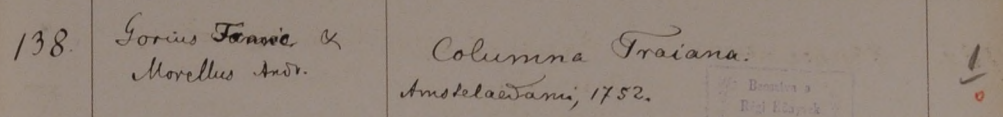 138.
Gorius Franc. &
Morellus Andr.
Columna Traiana.
Amstelaedami, 1752.
1
0